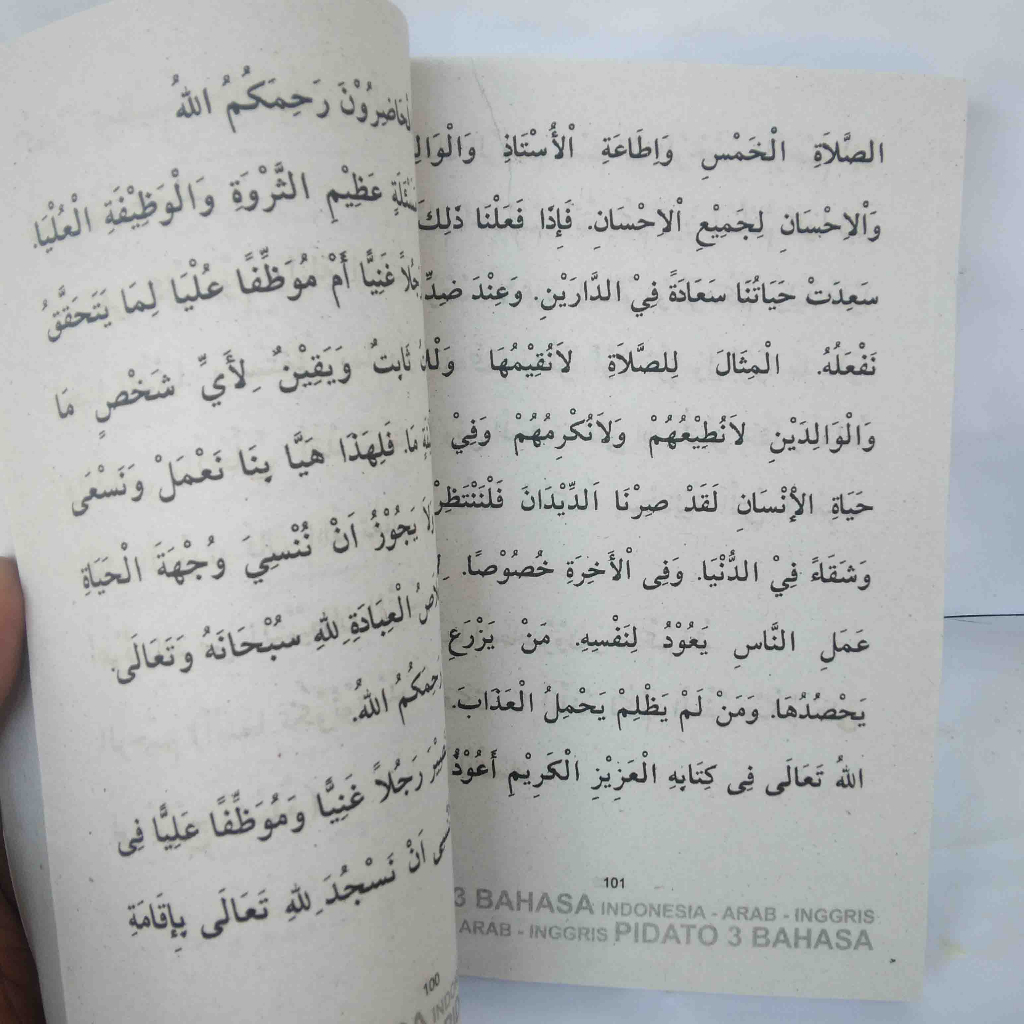 رَحِمَكُمُ اللهُ
عَظِيْمِ الثَّرْوَةِ وَالْوَظِيْفَةِ الْعُلْيَا.
غَنِيًّا أَمْ مُوَظِّفًا عُلْيَا لِمَا يَتَحَقَّقُ
ثَابِتٌ وَيَقِيْنٌ ِلأَيِّ شَخْصٍ مَا
مَا. فَلِهَذَا هَيَّا بِنَا نَعْمَلْ وَنَسْعَى
يَجُوْزُ اَنْ نُنْسِيَ وُجْهَةَ الْحَيَاةِ
الْعِبَادَةِ ِللهِ سُبْحَانَهُ وَتَعَالَى.
اللهُ.
رَجُلاً غَنِيًّا وَمُوَظِّفًا عَلِيًّا فِى
اَنْ نَسْجُدَ ِللهِ تَعَالَى بِإِقَامَةِ
100
الصَّلاَةِ الْخَمْسِ وَاِطَاعَةِ اْلأُسْتَاذِ
وَاْلاِحْسَانِ لِجَمِيْعِ اْلاِحْسَانِ. فَإِذَا فَعَلْنَا ذٰلِكَ
سَعِدَتْ حَيَاتُنَا سَعَادَةً فِيْ الدَّارَيْنِ. وَعِنْدَ ضِدِّ
نَفْعَلُهُ. الْمِثَالَ لِلصَّلاَةِ لاَنُقِيْمُهَا
وَالْوَالِدَيْنِ لاَنُطِيْعُهُمْ وَلاَنُكْرِمُهُمْ وَفِيْ
حَيَاةِ الإْنْسَانِ لَقَدْ صِرْنَا اَلدِّيْدَانَ فَلْنَنْتَظِرْ
وَشَقَاءً فِيْ الدُّنْيَا. وَفِى اْلأَخِرَةِ خُصُوْصًا.
عَمَلِ النَّاسِ يَعُوْدُ لِنَفْسِهِ. مَنْ يَزْرَعِ
يَحْصُدُهَا. وَمَنْ لَمْ يَظْلِمْ يَحْمِلُ الْعَذَابَ.
اللهُ تَعَالَى فِى كِتَابِهِ الْعَزِيْزِ الْكَرِيْمِ أَعُوْذُ
101
3 BAHASA INDONESIA - ARAB - INGGRIS
ARAB - INGGRIS PIDATO 3 BAHASA